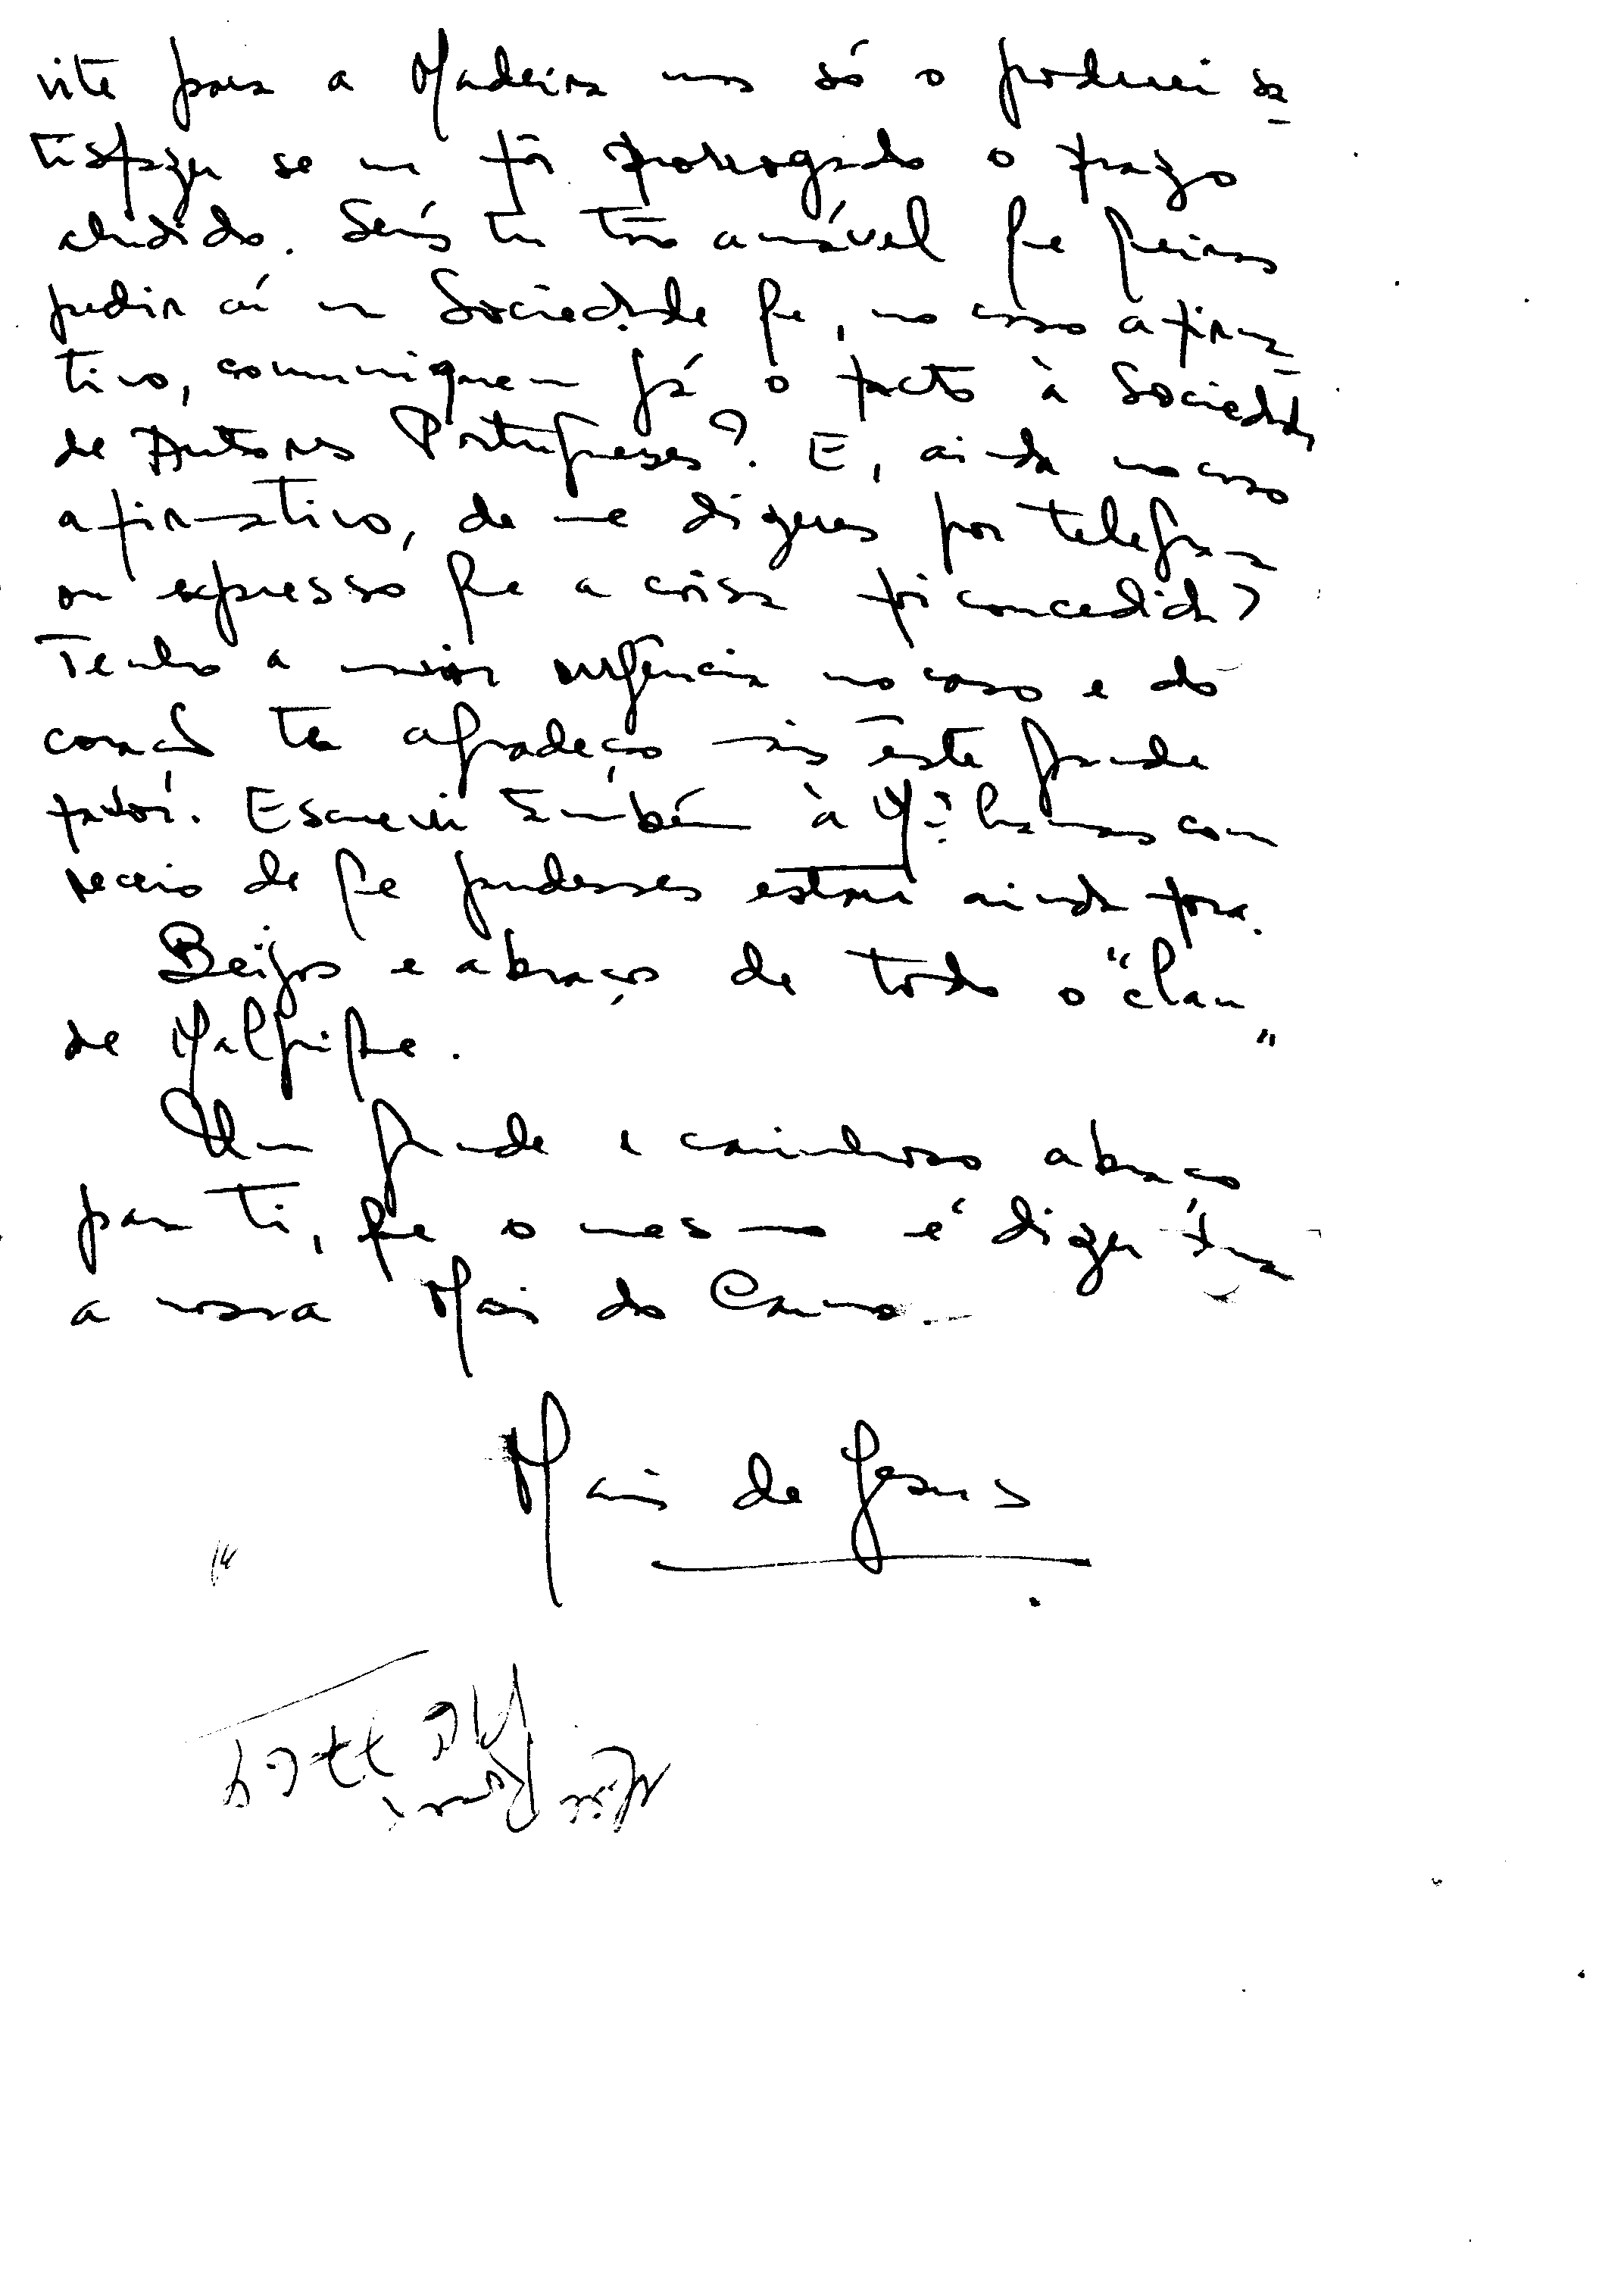 vite para a Madeira mas só o poderei sa-
tisfazer se me fôr prorrogado o prazo
aludido. Serás tu tão amável que queiras
pedir aí na Sociedade que, no caso afirma-
tivo, comuniquem já o facto à Sociedade
de Autores Portugueses? E, ainda no caso
afirmativo, de me dizeres por telegrama
ou expresso que a coisa foi concedida?
Tenho a maior urgência no caso e do
coração te agradeço mais êste grande
favor. Escrevi também à com
receio de que pudesses estar ainda fora.
Beijos e abraços de todo o "clan
de Malpique".
Um grande e carinhoso abraço
para ti, que o mesmo é dizer para
a nossa Maria do Carmo.
Maria de Jesus